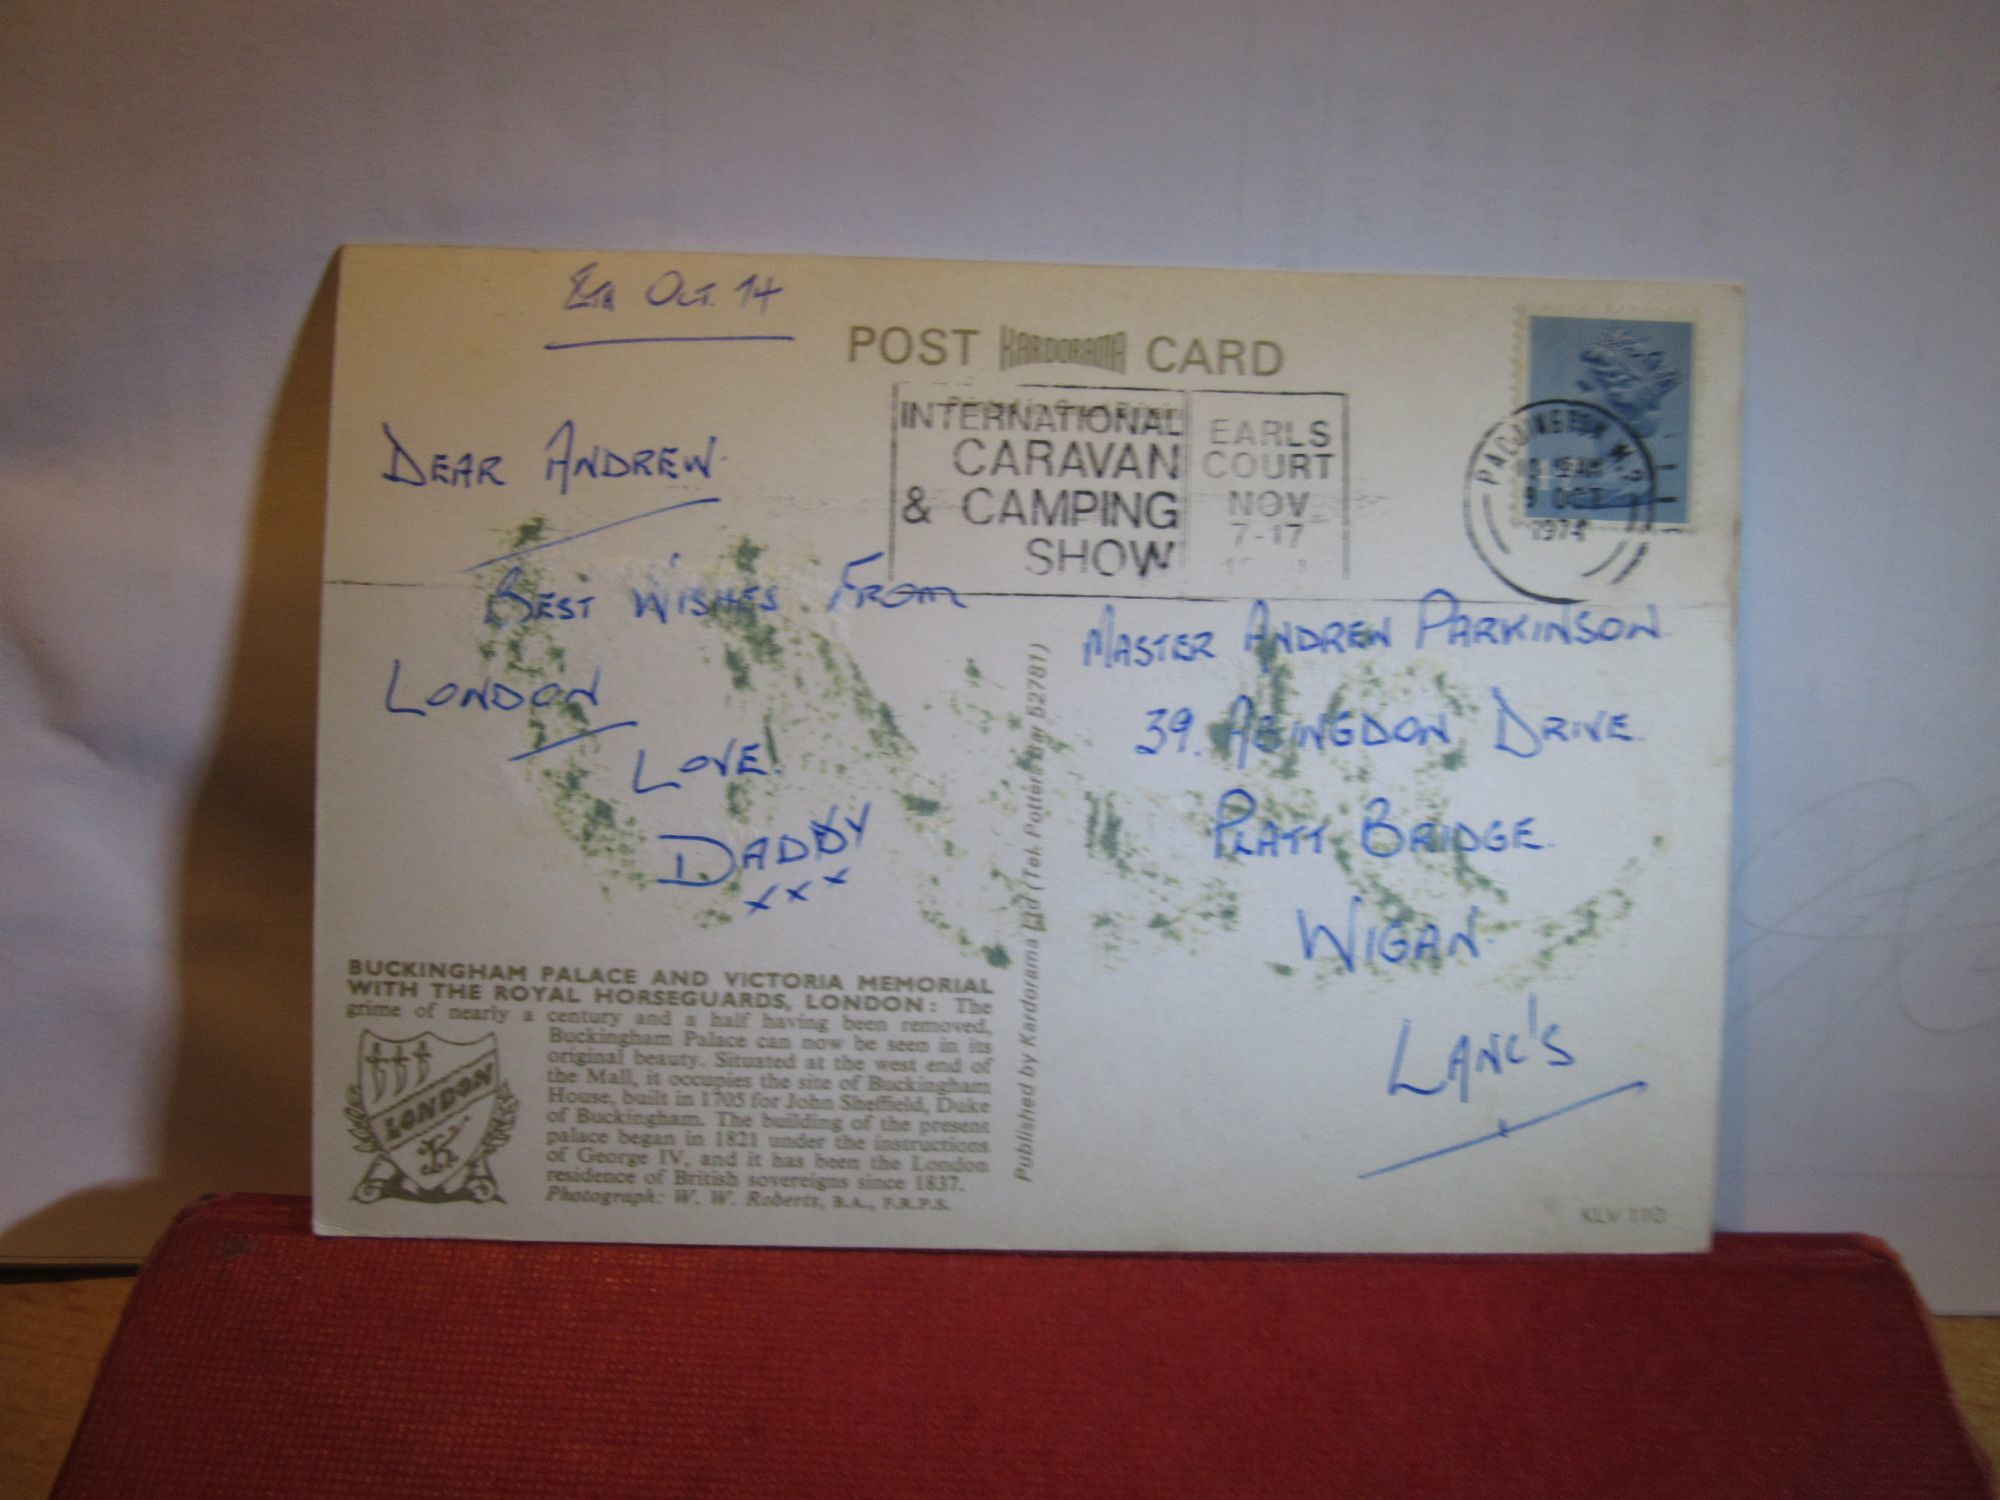 8th Oct. 74
POST KARDORAMA CARD
INTERNATIONAL
CARAVAN
& CAMPING
SHOW
EARLS
COURT
NOV
7-17
PADDINGTON W.2
9 OCT
1974
DEAR ANDREW.
BEST WISHES FROM
LONDON
LOVE!
DADDY
x x x
MASTER ANDREW PARKINSON.
39. ABINGDON DRIVE.
PLATT BRIDGE.
WIGAN.
LANC'S
Published by Kardorama Ltd (Tel. Potters Bar 52781)
BUCKINGHAM PALACE AND VICTORIA MEMORIAL
WITH THE ROYAL HORSEGUARDS, LONDON: The
grime of nearly a century and a half having been removed,
Buckingham Palace can now be seen in its
original beauty. Situated at the west end of
the Mall, it occupies the site of Buckingham
House, built in 1705 for John Sheffield, Duke
of Buckingham. The building of the present
palace began in 1821 under the instructions
of George IV, and it has been the London
residence of British sovereigns since 1837.
Photograph: W. W. Roberts, B.A., F.R.P.S.
LONDON
K
KLV 110